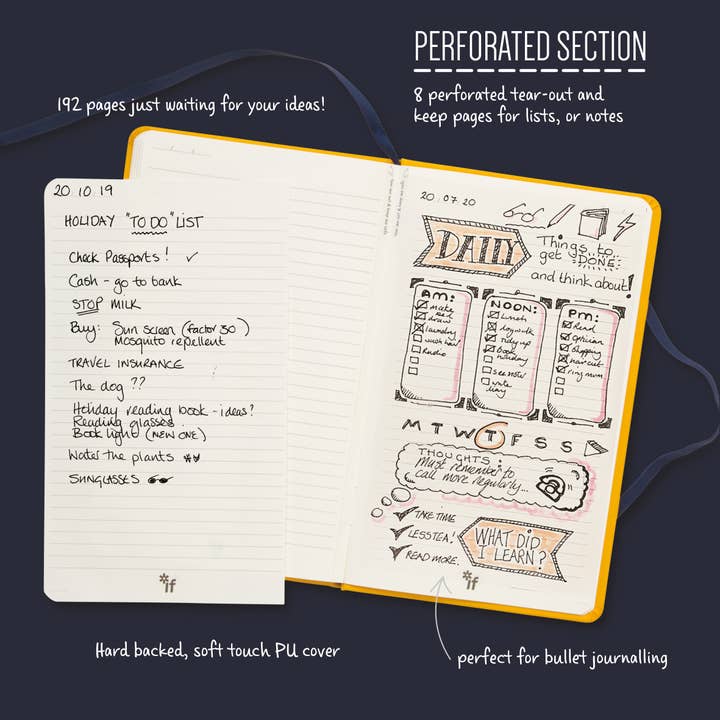 PERFORATED SECTION
192 pages just waiting for your ideas!
8 perforated tear-out and
keep pages for lists, or notes
20 10 19
HOLIDAY "TO DO" LIST
Check Passports! ✓
Cash - go to bank
STOP MILK
Buy: Sun screen (factor 30)
Mosquito repellent
TRAVEL INSURANCE
The dog ??
Holiday reading book - ideas?
Reading glasses
Book light (NEW ONE)
Water the plants
SUNGLASSES
*if
20.07.20
DAILY
Things to
get DONE
and think about!
AM:
make
bed
draw
laundry
wash hair
Radio
NOON:
Lunch
dog walk
Tidy up
Book
holiday
see note
write
diary
PM:
Read
Optician
Shopping
hair cut
ring mum
M T W T F S S
THOUGHTS:
Must remember to
call more regularly...
TAKE TIME
LESS TEA!
READ MORE.
WHAT DID
I LEARN?
*if
Hard backed, soft touch PU cover
perfect for bullet journalling